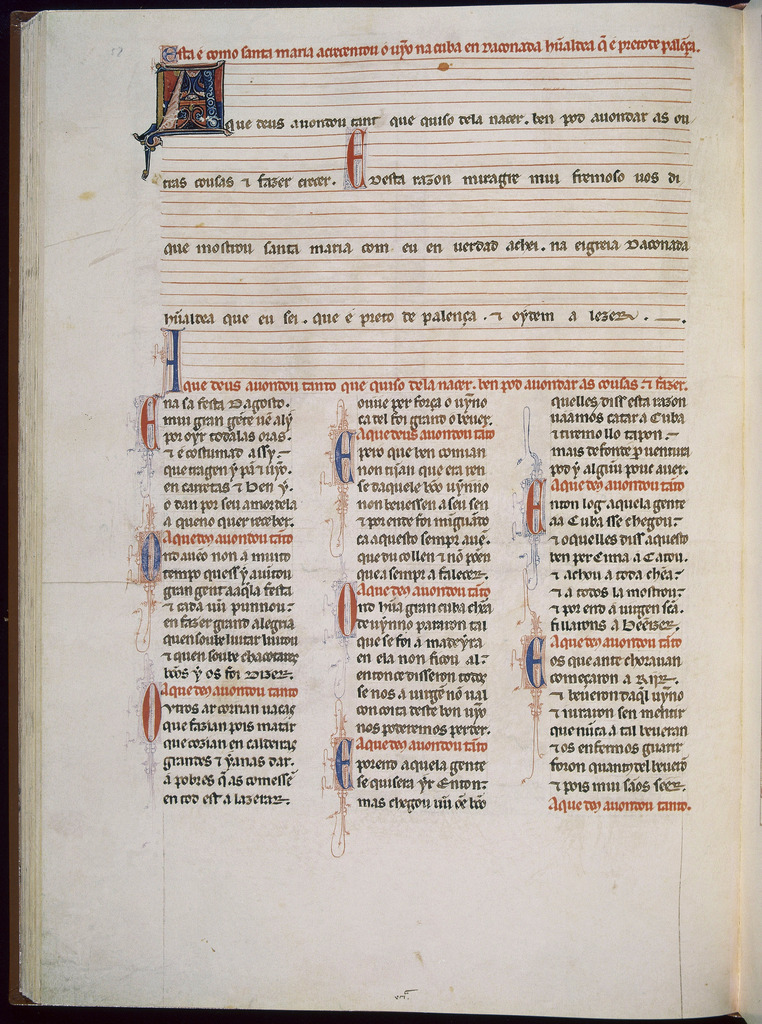 Esta é como santa maria acrecentou o vỹo na cuba en Daconada hũaldea q̃ é preto de palẽça.
A que deus auondou tant que quiso dela nacer. ben pod auondar as ou
tras cousas ⁊ fazer crecer. E Desta razon miragre mui fremoso uos di
que mostrou santa maria com eu en uerdad achei. na eigreia Daconada
hũaldea que eu sei. que é preto de palença. ⁊ oýdem a lezer.
A que deus auondou tanto que quiso dela nacer. ben pod auondar as cousas ⁊ fazer.
E na sa festa Dagosto.
mui gran gẽte uẽ alý
por oýr todalas oras.
⁊ é costumad assý.
que tragen ý pã ⁊ uỹo.
en carretas ⁊ Den ý.
o dan por seu amor dela
a queno quer receber.
A que deus auondou tãto
O nd aueo non a muito
tempo quess ý aiũtou
gran gent aaq̃la festa
⁊ cada ũu punnou
en fazer grand alegria
quen soube luitar luitou
⁊ quen soube chacotares
bõos ý os foi Dizer.
A que deus auondou tanto
O utros ar corrian uacas
que fazian pois matar
que cozian en caldeiras
grandes ⁊ ýanas dar.
a pobres q̃ as comessẽ
en tod est a lazerar.
ouue per força o uỹno
ca tel foi grand o beuer.
A que deus auondou tãto
E pero que ben comian
non tijan que era ren
se daquele bõo uỹnno
non beuessen a seu sen
⁊ por ente foi minguãdo
ca aquesto sempr auẽ.
que du collen ⁊ nõ põen
que a sempr a falecer.
A que deus auondou tanto
O nd hũa gran cuba chẽa
de uỹnno pararon tal
que se foi a madeýra
en ela non ficou al.
entonce disseron todos
se nos a uirgẽ nõ ual
con coita deste bon uỹo
nos poderemos perder.
A que deus auondou tãto
E por end aquela gente
se quisera ýr Enton.
mas chegou ũu om̃e bõo
quelles diss esta razon
uaamos catar a Cuba
⁊ tiremoll o tapon.
mais de fonte p̃ uentura
pod ý algũu pouc auer.
A que deus auondou tãto
E nton log aquela gente
aa Cuba sse chegou
⁊ o quelles diss aquesto
ben per Cima a Catou.
⁊ achou a toda chẽa
⁊ a todos la mostrou
⁊ por end a uirgen sc̃a.
fillaronss a Bẽeizer.
A que deus auondou tãto
E os que ante chorauan
começaron a Rijr.
⁊ beueron daq̃l uỹno
⁊ iuraron sen mentir
que nũca a tal beueran
⁊ os enfermos guarir
foron quantos del beuerõ
⁊ pois mui sãos seer.
A que deus auondou tanto.